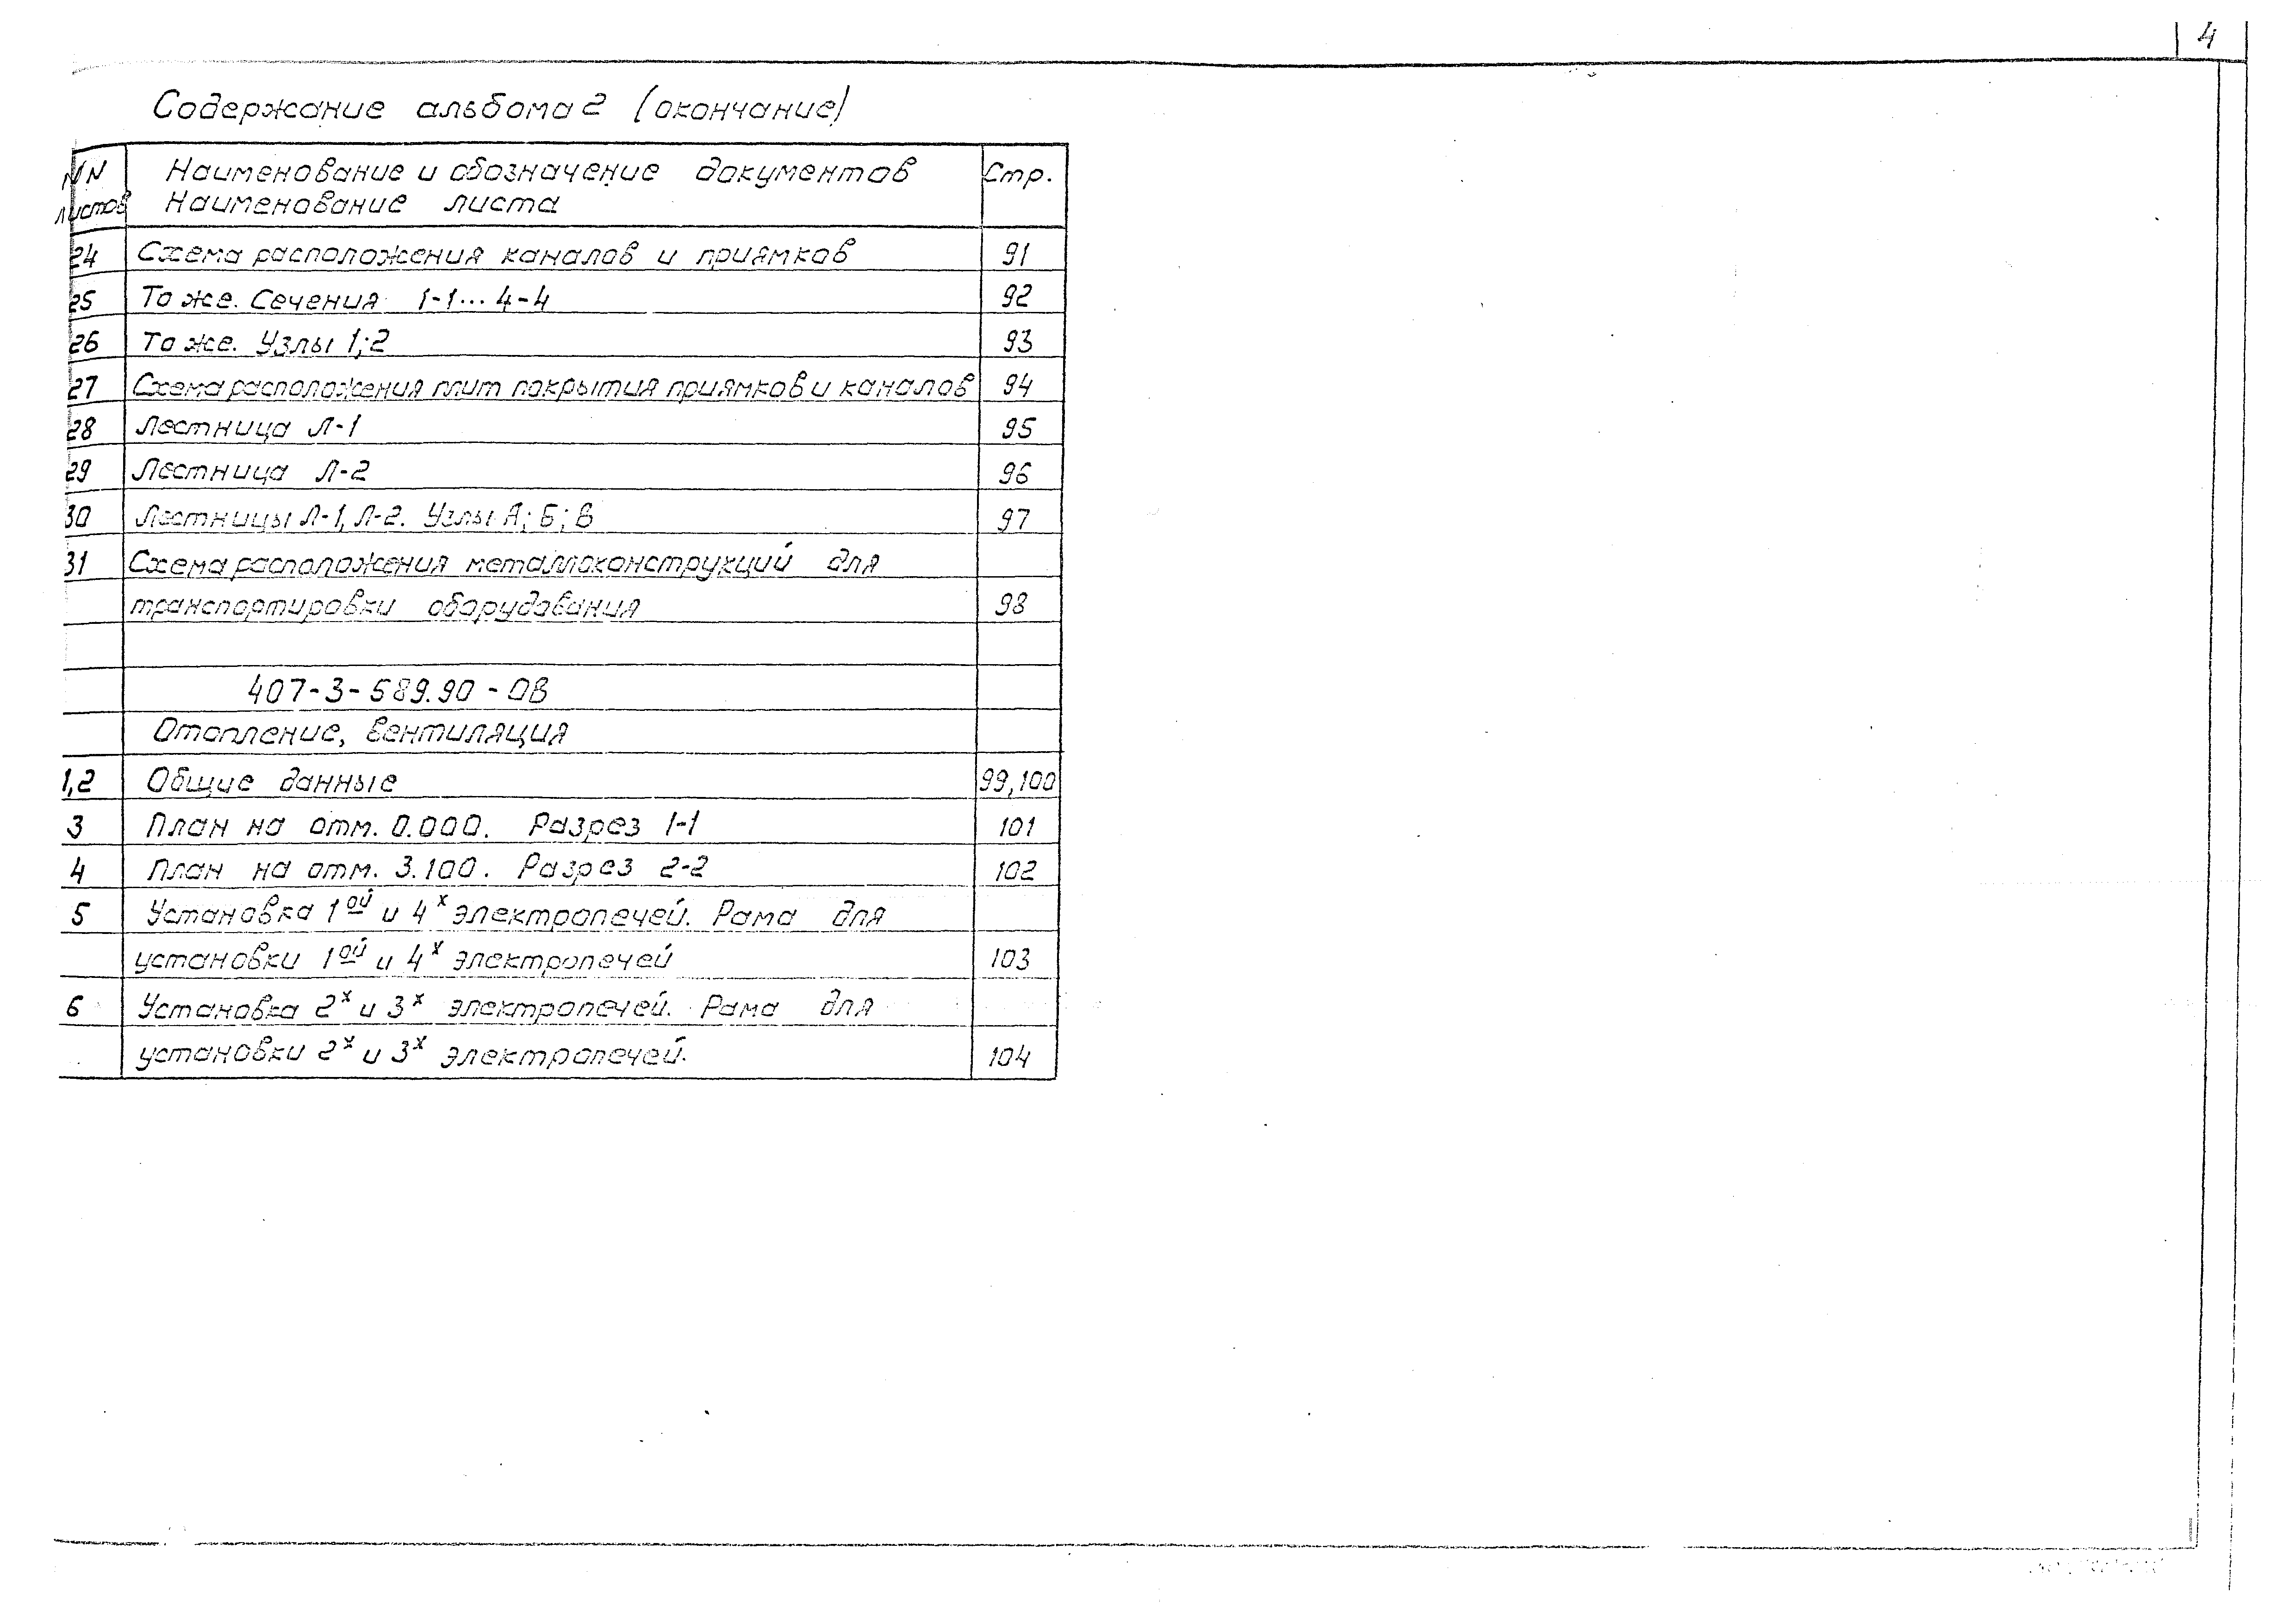 4
Содержание альбома 2 (окончание)
NN листов
Наименование и обозначение документов
Наименование листа
Стр.
24 Схема расположения каналов и приямков 91
25 То же. Сечения 1-1... 4-4 92
26 То же. Узлы 1;2 93
27 Схема расположения плит покрытия приямков и каналов 94
28 Лестница Л-1 95
29 Лестница Л-2 96
30 Лестницы Л-1, Л-2. Узлы А; Б; В 97
31 Схема расположения металлоконструкций для
транспортировки оборудования 98
407-3-589.90-ОВ
Отопление, вентиляция
1,2 Общие данные 99,100
3 План на отм. 0.000. Разрез 1-1 101
4 План на отм. 3.100. Разрез 2-2 102
5 Установка 1ой и 4х электропечей. Рама для
установки 1ой и 4х электропечей 103
6 Установка 2х и 3х электропечей. Рама для
установки 2х и 3х электропечей. 104